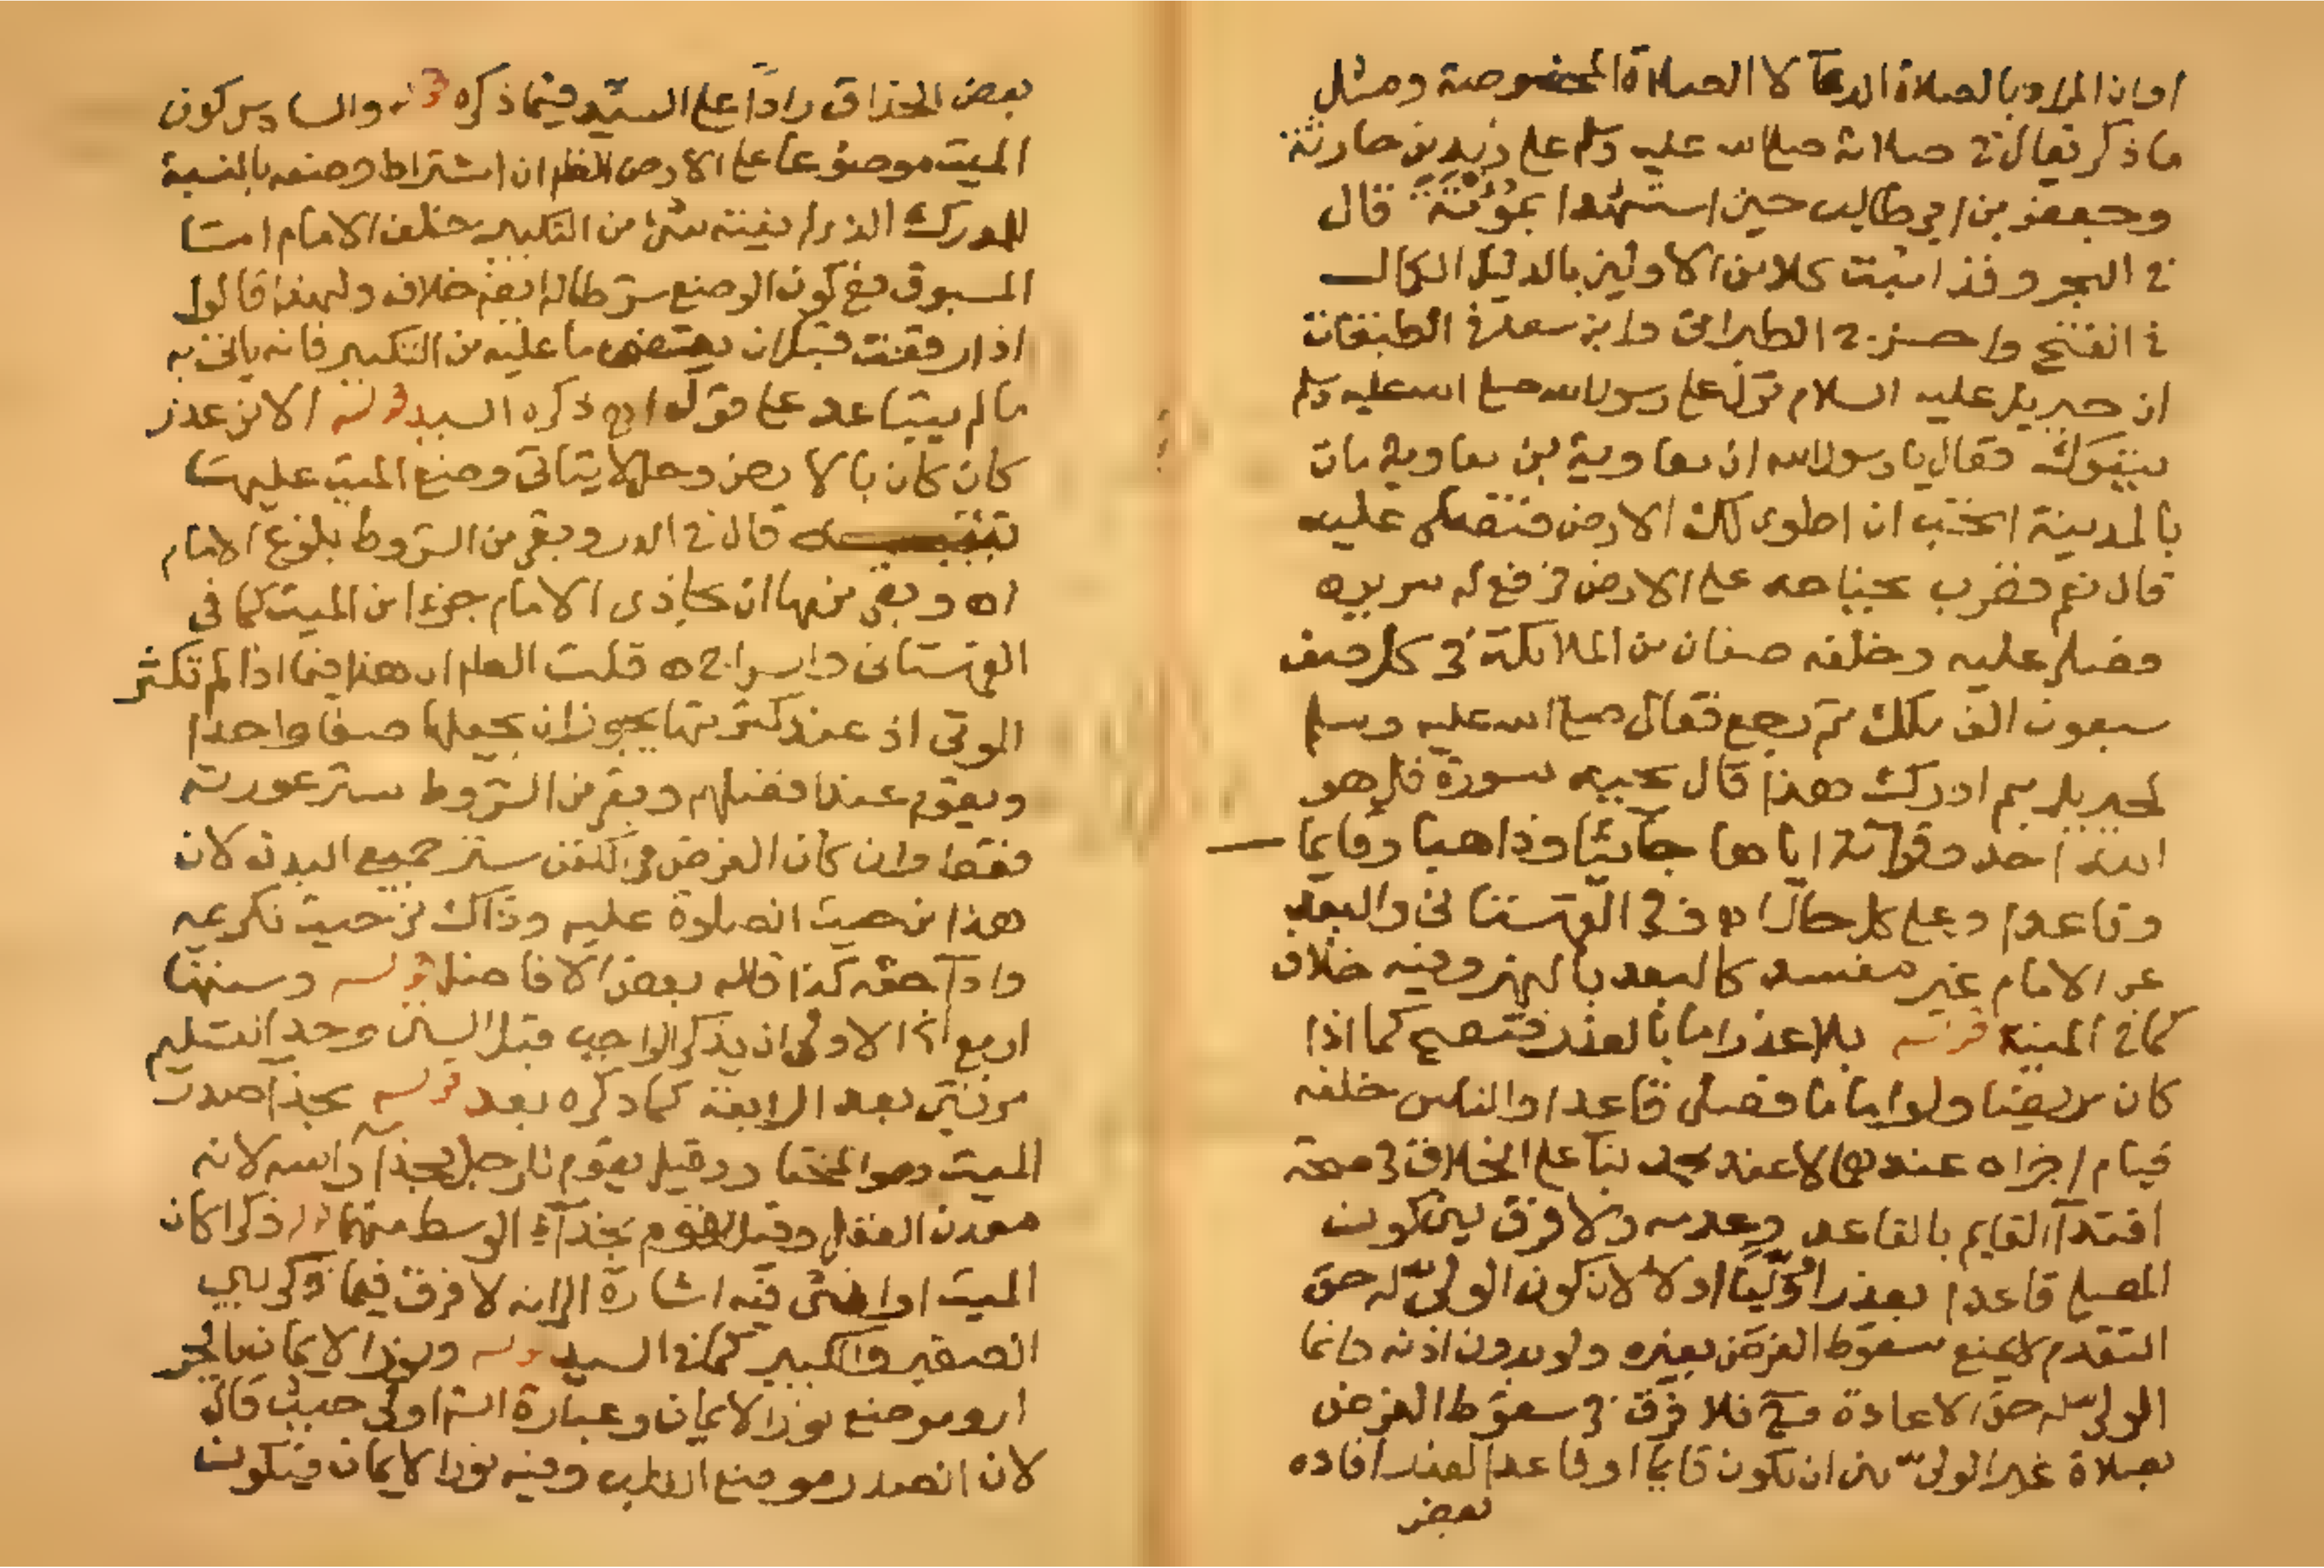 او ان المراد بالصلاة الدعآ لا الصلاة المخصوصة ومثل
ما ذكر يقال في صلاته صلى الله عليه وسلم على زيد بن حارثة
وجعفر بن ابي طالب حين استشهدا بمؤتة قال
في البحر وقد اثبت كلا من الاولين بالدليل الكمال
في الفتح واحسن في الطبراني وابن سعد في الطبقات
ان جبريل عليه السلام نزل على رسول الله صلى الله عليه وسلم
بتبوك فقال يا رسول الله ان معاوية بن معاوية مات
بالمدينة اتحب ان اطوى لك الارض فتصلى عليه
قال نعم فضرب بجناحه على الارض فرفع له سريره
فصلى عليه وخلفه صفان من الملائكة في كل صف
سبعون الف ملك ثم رجع فقال صلى الله عليه وسلم
لجبريل بم ادرك هذا قال بحبه سورة قل هو
الله احد وقرآته اياها جآئيا وذاهبا وقايما
وقاعدا وعلى كل حال اه وفي القهستاني والبعد
عن الامام غير مفسد كالبعد بالنهر وفيه خلاف
كما في المنية قوله بلا عذر اما بالعذر فتصح كما اذا
كان مريضا ولو اماما فصلى قاعدا والناس خلفه
قيام اجزاه عندهما لا عند محمد بنا على الخلاف في صحة
اقتدآ القايم بالقاعد وعدمه ولا فرق بين كون
المصلى قاعدا بعذر وليا او لا لان كون الولي له حق
التقدم لا يمنع سقوط الفرض بغيره ولو بدون اذنه وانما
الولي له حق الاعادة فلا فرق في سقوط الفرض
بصلاة غير الولي بين ان يكون قايما او قاعدا لعذر افاده
بعض
بعض الحذاق رادا على السيد فيما ذكره قوله والسادس كون
الميت موضوعا على الارض ان اشتراط وضعه بالنسبة
للمدرك الذي لم يفته شئ من التكبير خلف الامام اما
المسبوق ففي كون الوضع شرطا له ايضا خلاف ولهذا قالوا
اذا رفعت قبل ان يقضى ما عليه من التكبير فانه ياتي به
ما لم يتباعد على قول اه ذكره السيد قوله الا من عذر
كان كان بالارض وحل لا يتاتى وضع الميت عليها
تنبيه قال في الدر وبقى من الشروط بلوغ الامام
اه وبقى منها ان يحاذى الامام جزءا من الميت كما فى
القهستانى اه قلت الظاهر ان هذا فيما اذا لم تكثر
الموتى اذ عند كثرتها يجوز ان يجعلها صفا واحدا
ويقوم عند افضلهم وبقى من الشروط ستر عورته
فقط وان كان الفرض في الكفن ستر جميع البدن لان
هذا من حيث الصلوة عليه وذاك من حيث تكريمه
وادآ حقه كذا قاله بعض الافاضل قوله وسننها
اربع الاولى ان يذكر الواجب قبل السنن وهو التسليم
مرتين بعد الرابعة كما ذكره بعد قوله بحذا صدر
الميت وهو المختار وقيل يقوم للرجل بحذآ راسه لانه
معدن العقل وقيل يقوم بحذآء الوسط منهما قوله ذكرا كان
الميت او انثى فيه اشارة الى انه لا فرق فيما ذكر بين
الصغير والكبير كما في السيد قوله ونور الايمان
اى وموضع نور الايمان وعبارة الشرح اولى حيث قال
لان الصدر موضع القلب وفيه نور الايمان فيكون